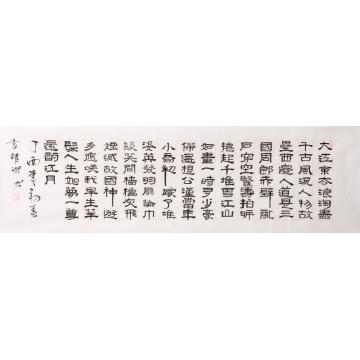 大江東去浪淘盡
千古風流人物故
壘西邊人道是三
國周郎赤壁亂
石穿空驚濤拍岸
捲起千堆雪江山
如畫一時多少豪
傑遙想公瑾當年
小喬初嫁了雄
姿英發羽扇綸巾
談笑間檣櫓灰飛
煙滅故國神遊
多應笑我早生華
髮人生如夢一尊
還酹江月
丁酉
書